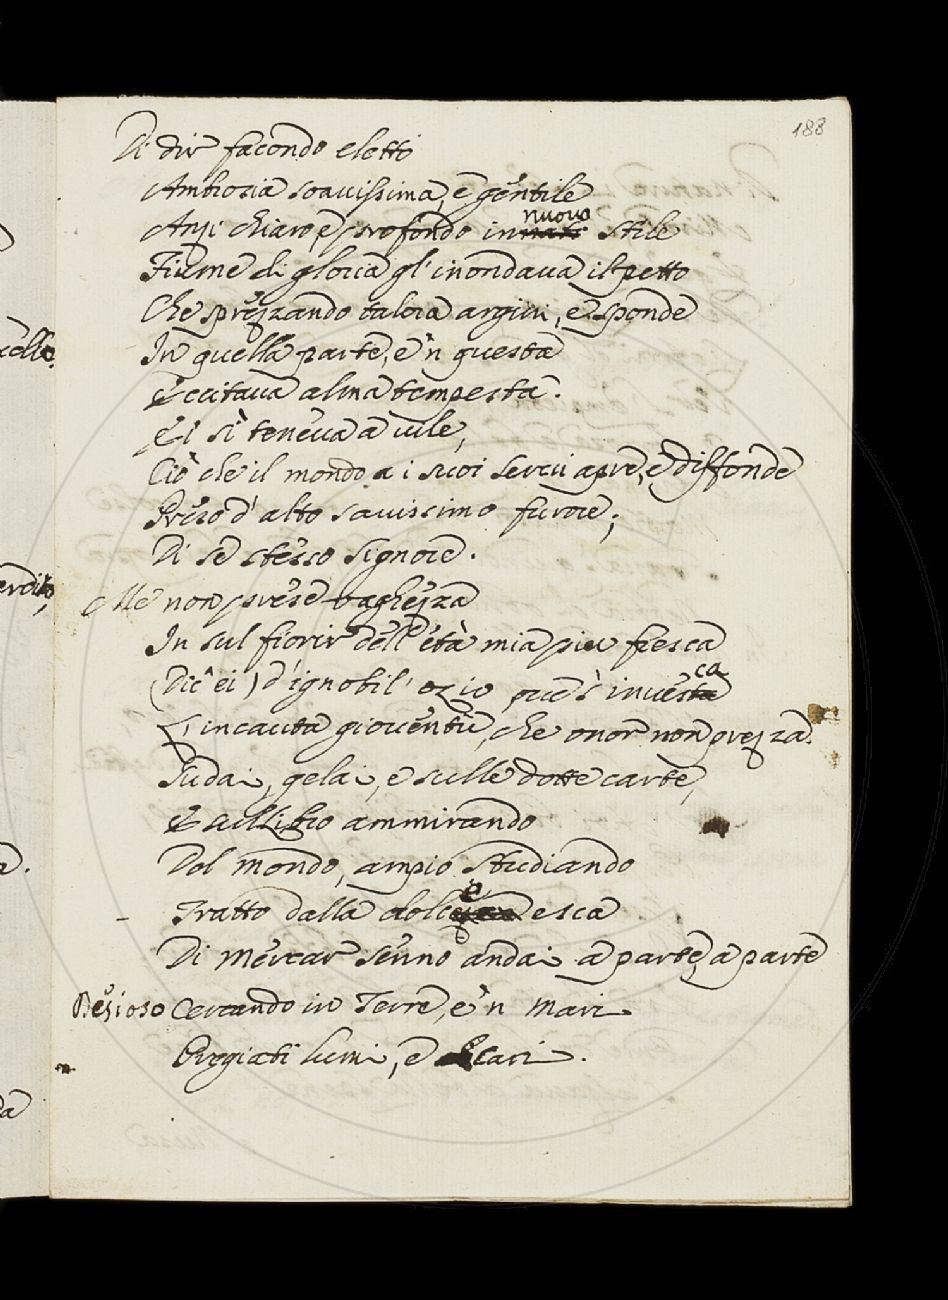 188
Di dir facondo eletto
Ambrosia soavissima, e gentile
Anzi chiaro, e profondo in nuovo stile
Fiume di gloria gl'inondava il petto
Che sprezzando talora argini, e sponde
In quella parte, e 'n questa
Eccitava alma tempesta.
Ei sì teneva a vile,
Ciò che il mondo a i suoi servi apre, e diffonde
Preso d'alto savissimo furore;
Di se stesso signore.
Me non prese vaghezza
In sul fiorir dell'età mia piu fresca
(Dic'ei) d'ignobil' ozio ove s'invesca
L'incauta gioventù, che onor non prezza.
Sudai, gelai, e sulle dotte carte,
E sul Libro ammirando
Dol mondo, ampio studiando
Tratto dalla dolce esca
Di mercar senno andai a parte, a parte
Desioso Cercando in Terra, e 'n Mari
Pregiati lumi, e cari.